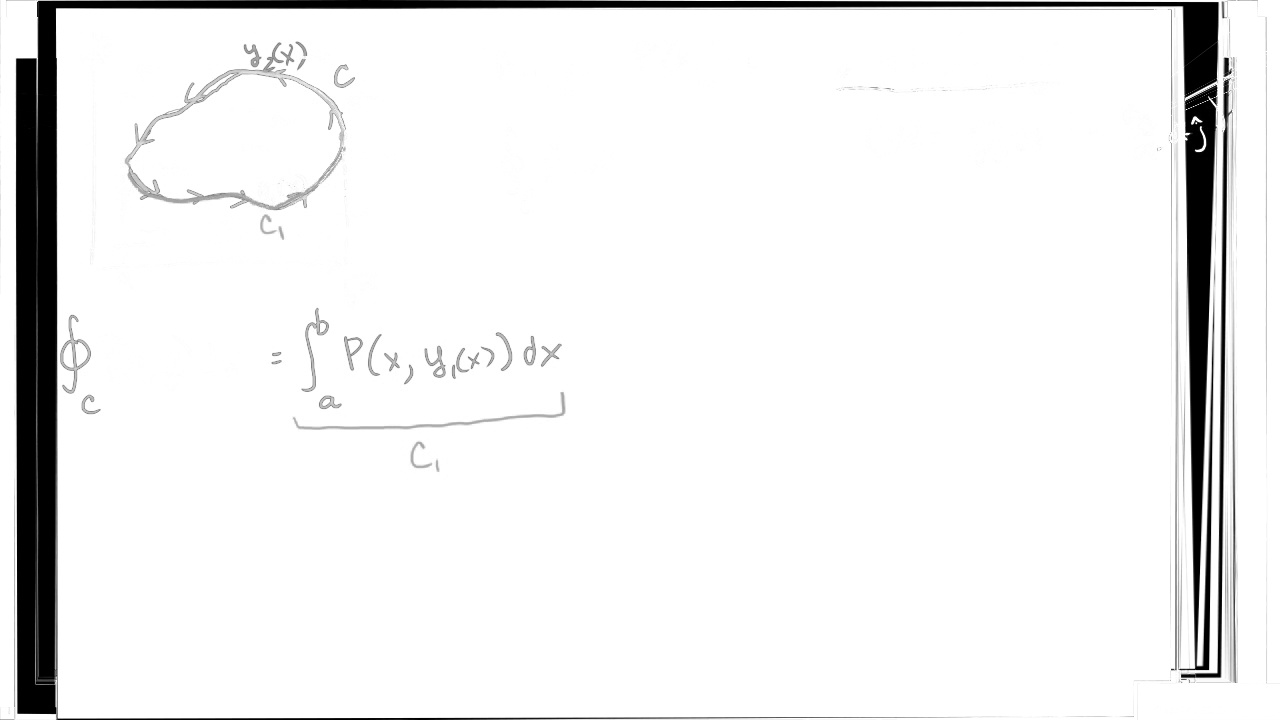 y₂(x)
C
C₁
∮_C = ∫_a^b P(x, y₁(x)) dx
C₁
ĵ